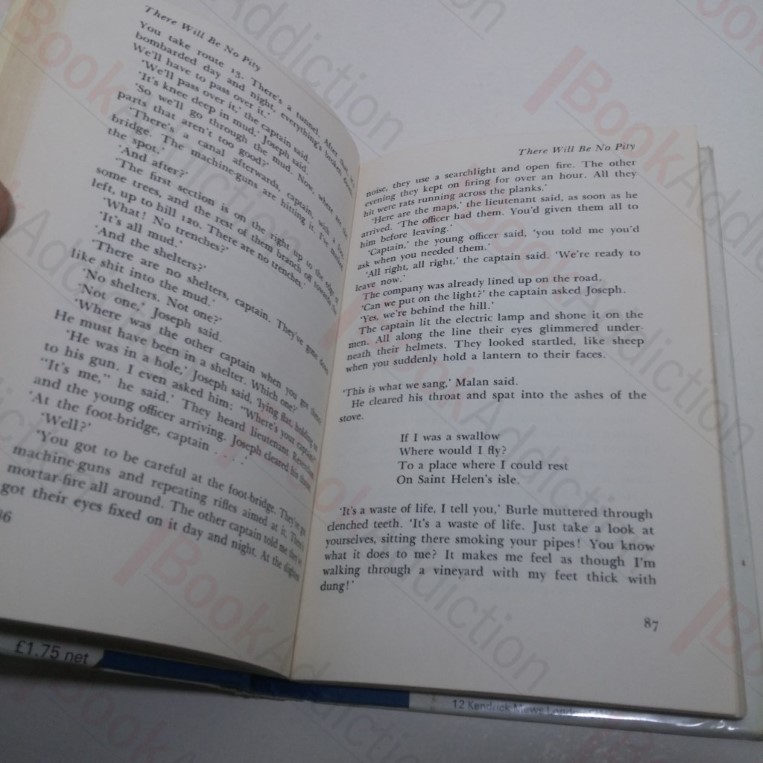 There Will Be No Pity
You take route 15. There's a tunnel. After that
bombarded day and night, everything's broken down.
We'll have to pass over it.'
'We'll pass over it,' the captain said.
'It's knee deep in mud,' Joseph said.
'So we'll go through the mud. Now, where are the
parts that aren't too good?'
'There's a canal afterwards, captain, with a
bridge. The machine-guns are hitting it. I've
the spot.'
'And after?'
'The first section is on the right up to the edge
some trees, and the rest of them branch off towards the
left, up to hill 120. There are no trenches.'
'What! No trenches?'
'It's all mud.'
'And the shelters?'
'There are no shelters, captain. They've gone down
like shit into the mud.'
'No shelters. Not one?'
'Not one,' Joseph said.
'Where was the other captain when you got there?
He must have been in a shelter. Which one?'
'He was in a hole,' Joseph said, 'lying flat, holding on
to his gun. I even asked him: "Where's your captain?"
"It's me," he said.' They heard lieutenant
and the young officer arriving. Joseph cleared his throat.
'At the foot-bridge, captain . . . .'
'Well?'
'You got to be careful at the foot-bridge. They've got
machine-guns and repeating rifles aimed at it. There's
mortar-fire all around. The other captain told me they've
got their eyes fixed on it day and night. At the slightest
86
There Will Be No Pity
noise, they use a searchlight and open fire. The other
evening they kept on firing for over an hour. All they
hit were rats running across the planks.'
'Here are the maps,' the lieutenant said, as soon as he
arrived. 'The officer had them. You'd given them all to
him before leaving.'
'Captain,' the young officer said, 'you told me you'd
ask when you needed them.'
'All right, all right,' the captain said. 'We're ready to
leave now.'
The company was already lined up on the road.
'Can we put on the light?' the captain asked Joseph.
'Yes, we're behind the hill.'
The captain lit the electric lamp and shone it on the
men. All along the line their eyes glimmered under-
neath their helmets. They looked startled, like sheep
when you suddenly hold a lantern to their faces.
'This is what we sang,' Malan said.
He cleared his throat and spat into the ashes of the
stove.
If I was a swallow
Where would I fly?
To a place where I could rest
On Saint Helen's isle.
'It's a waste of life, I tell you,' Burle muttered through
clenched teeth. 'It's a waste of life. Just take a look at
yourselves, sitting there smoking your pipes! You know
what it does to me? It makes me feel as though I'm
walking through a vineyard with my feet thick with
dung!'
87
£1.75 net
12 Kendrick Mews
BookAddiction